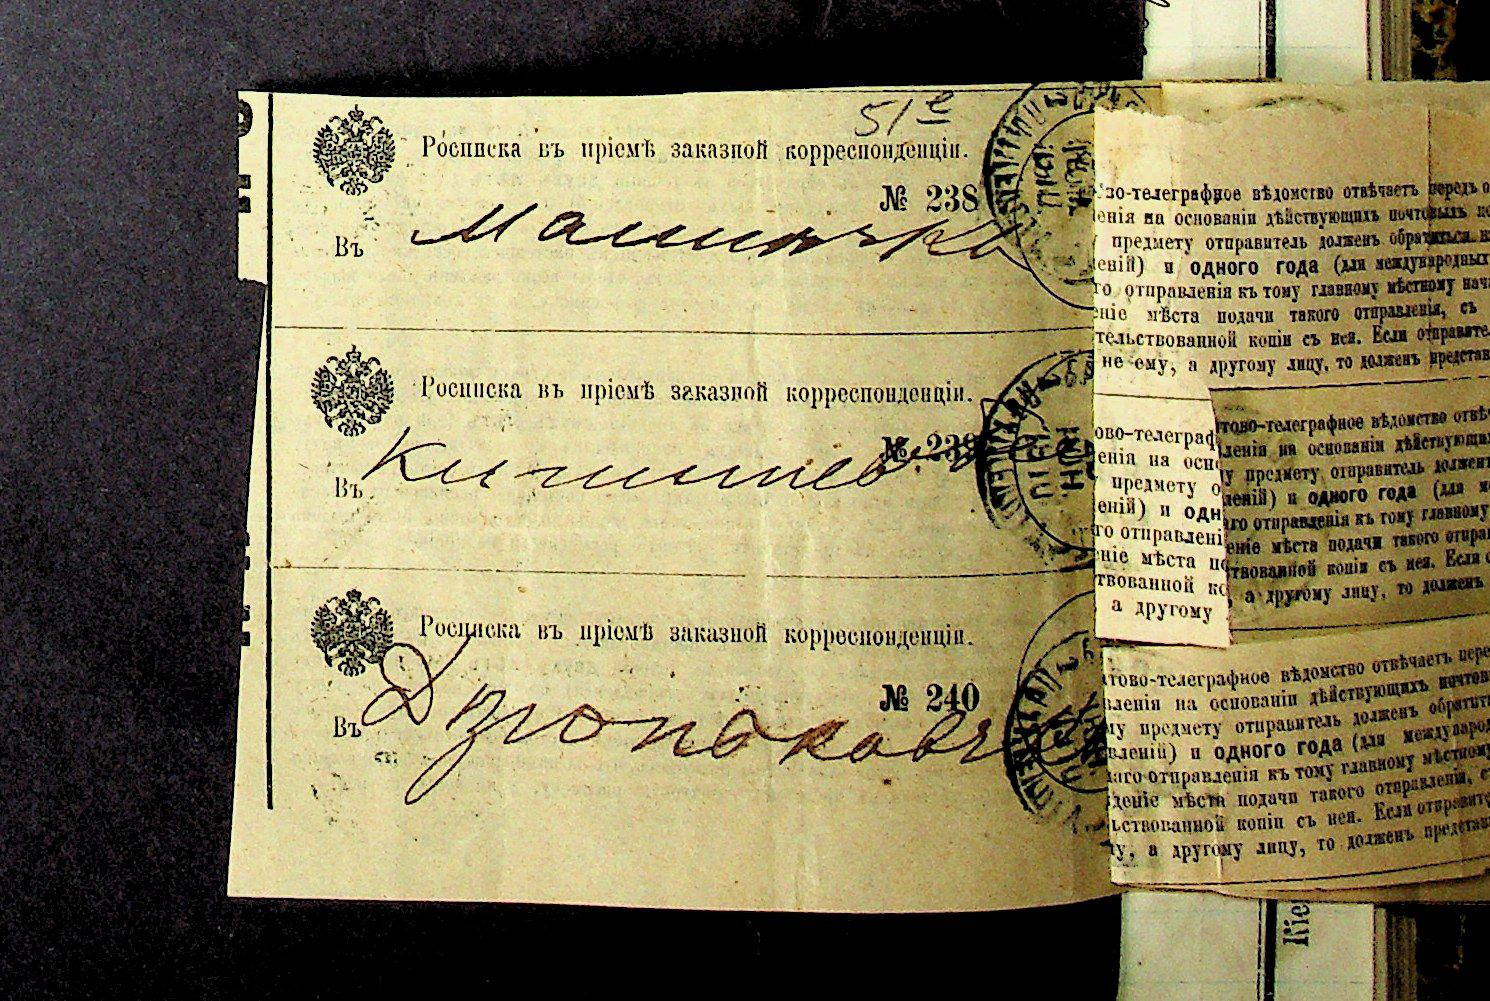 51е
Росписка въ пріемѣ заказной корреспонденціи.
№ 238
Въ
Росписка въ пріемѣ заказной корреспонденціи.
№ 239
Въ Кишинев
Росписка въ пріемѣ заказной корреспонденціи.
№ 240
Въ
во-телеграфное вѣдомство отвѣчаетъ передъ о
енія на основаніи дѣйствующихъ почтовыхъ
предмету отправитель долженъ обратиться
еній) и одного года (для международныхъ
го отправленія къ тому главному мѣстному нача
еніе мѣста подачи такого отправленія, съ
тельствованной копіи съ нея. Если отправите
не ему, а другому лицу, то долженъ представ
ово-телеграф
енія на осно
предмету о
еній) и одн
го отправлені
еніе мѣста по
твованной ко
а другому
тово-телеграфное вѣдомство отвѣч
ленія на основаніи дѣйствующи
у предмету отправитель должен
леній) и одного года (для м
аго отправленія къ тому главному
еніе мѣста подачи такого отпра
твованной копіи съ нея. Если о
а другому лицу, то долженъ
тово-телеграфное вѣдомство отвѣчаетъ пере
вленія на основаніи дѣйствующихъ почтов
му предмету отправитель долженъ обратить
вленій) и одного года (для международ
аго отправленія къ тому главному мѣстному
деніе мѣста подачи такого отправленія, с
ьствованной копіи съ нея. Если отправите
у, а другому лицу, то долженъ представ